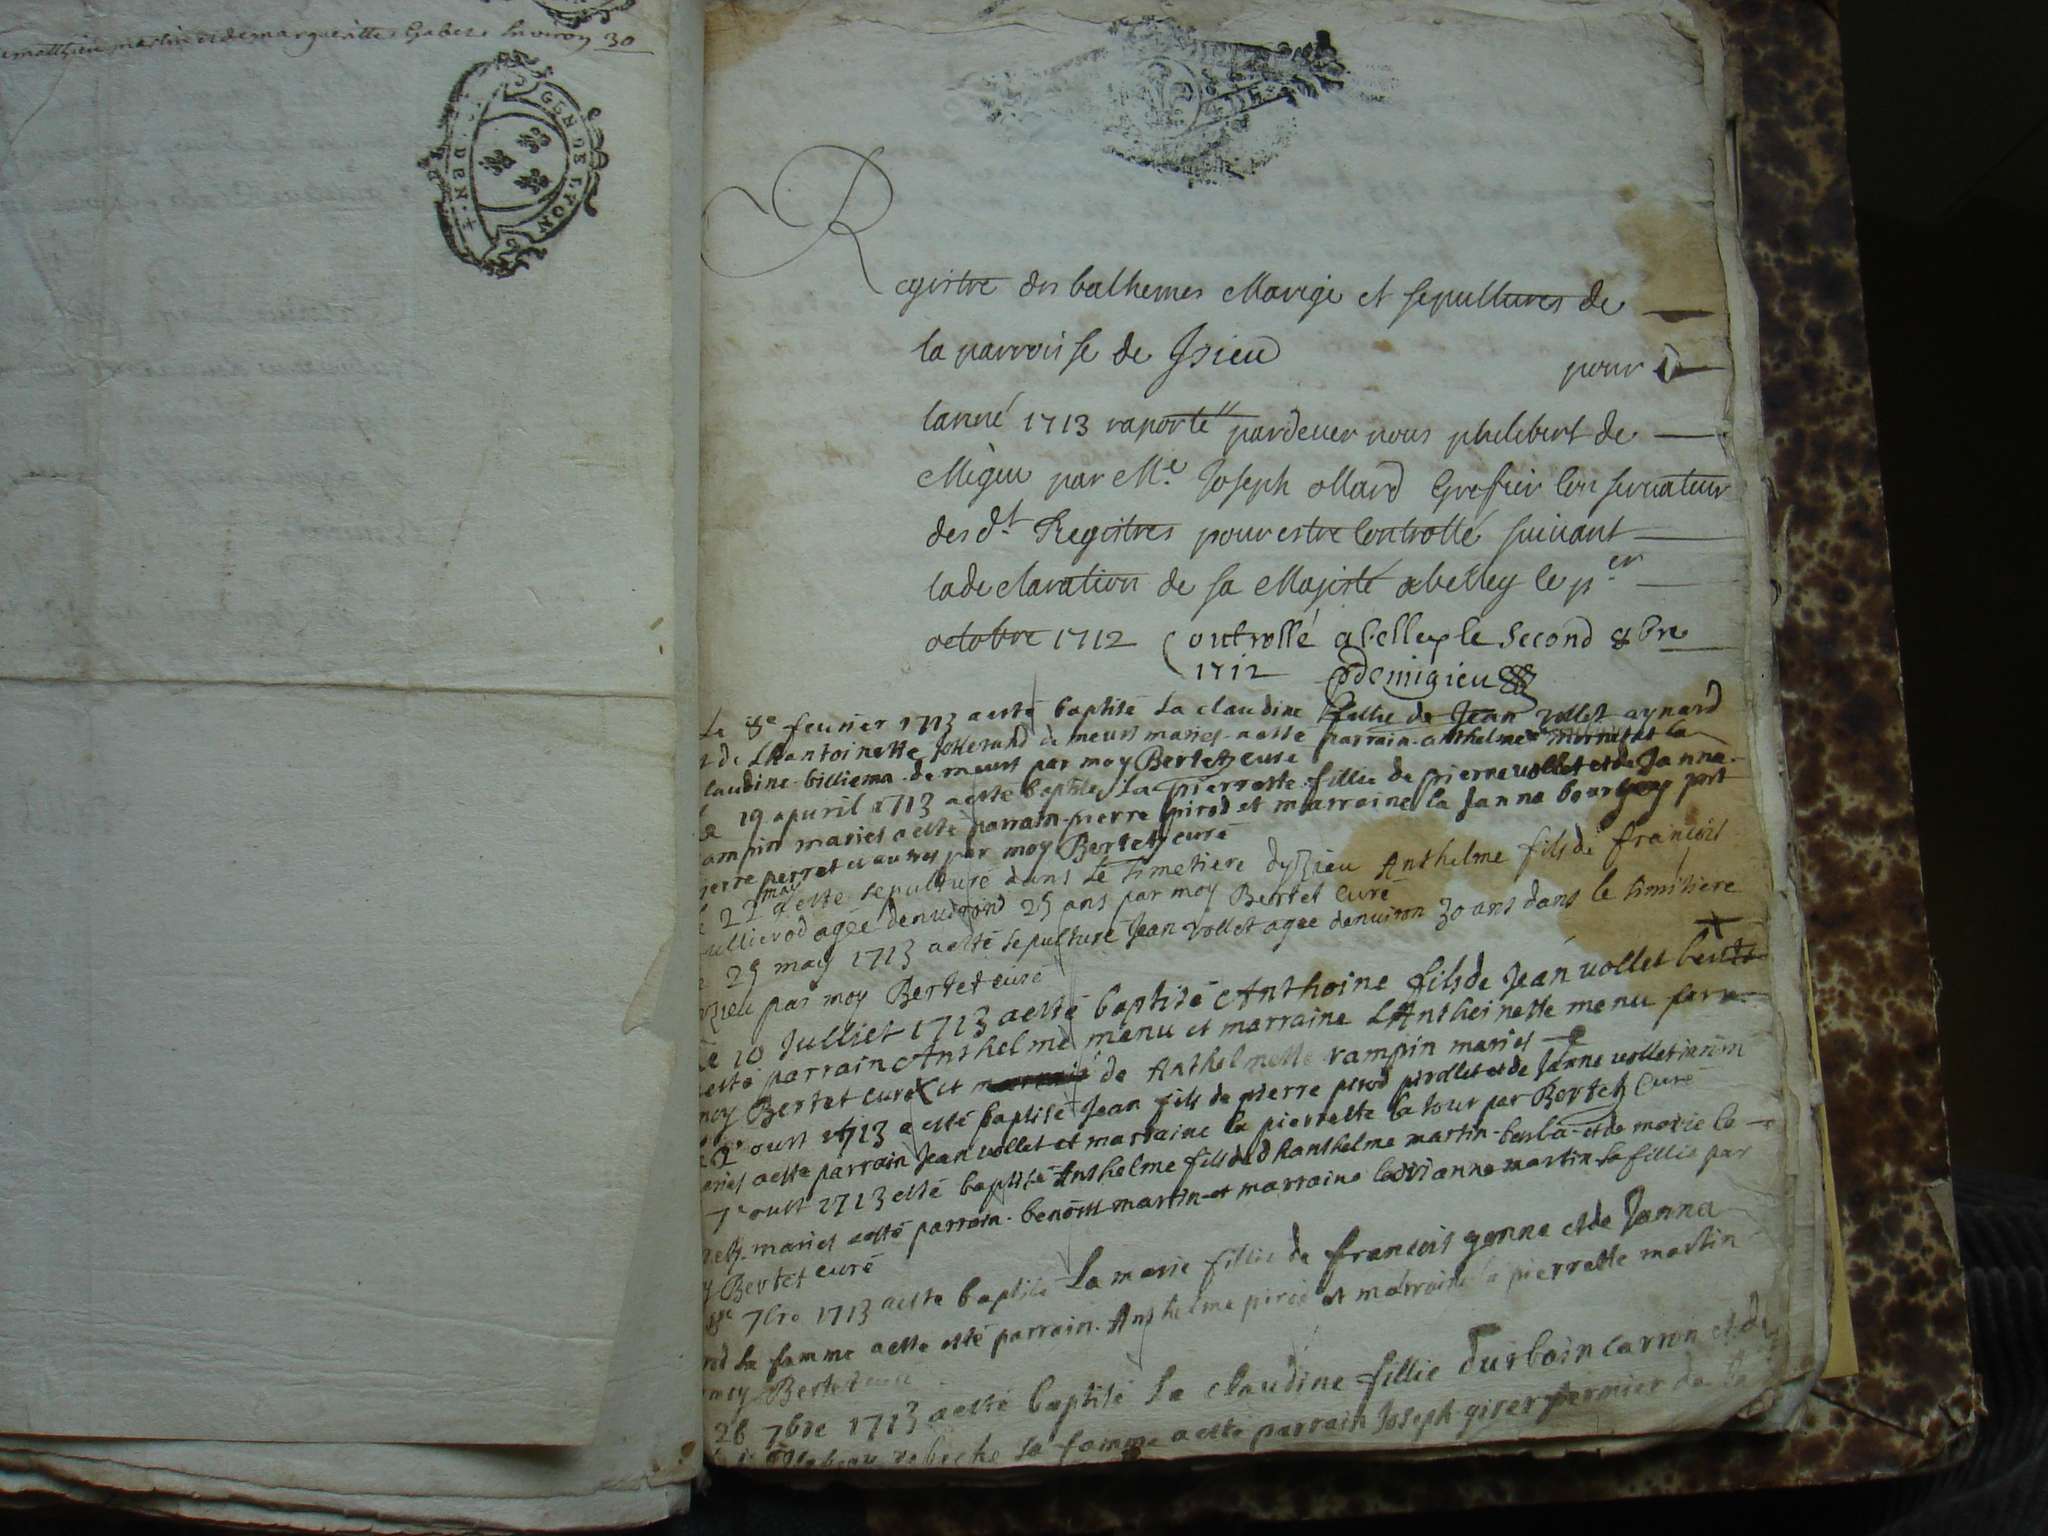 mathieu martin et de marguerittes Gabet Environ 30
GEN DE LYON
DEN
Registre des bathemes Marige et sepultures de
la parroisse de Jsieu pour
lanné 1713 raporté pardever nous philibert de
Migieu par Me. Joseph ollard Greffier Conseruateur
des dt Registres pour estre Controllé suiuant
la declaration de sa Majesté abelley le per
octobre 1712 Controllé abelley le second 8bre
1712 Demigieu
Le 8e feurier 1713 aesté baptisé La claudine fillie de Jean vollet aynard
et de Lhantoinette demeurt maries aesté parrain anthelme mornet et la
claudine billiema demeurt par moy Bertet curé
Le 19 apuril 1713 aesté baptisé La pierrette fillie de pierre vollet et de Janna
rampin maries aesté parrain pierre pirod et marraine la Janna bourgey prt
pierre perret et autres par moy Bertet curé
Le 22 may aesté sepulturé dans Le simetiere dyzieu Anthelme fils de francois
ullierod agée denuiron 25 ans par moy Bertet Curé
Le 25 may 1713 aesté sepulturé Jean vollet agée denuiron 30 ans dans le simitiere
dyzieu par moy Bertet curé
Le 10 Julliet 1713 aesté baptisé Anthoine fils de Jean vollet
aesté parrain Anthelme menu et marraine LAnthoinette menu par
moy Bertet curé X et de Anthelmette rampin maries
Le 2e oust 1713 aesté baptisé Jean fils de pierre pirod pirollet et de Janne vollet
maries aesté parrain Jean vollet et marraine la pierrette la tour par Bertet Curé
Le 7e oust 1713 esté baptisé Anthelme fils dedhanthelme martin besla et de marie be
maries aesté parrain benoist martin et marraine la martin sa fillie par
moy Bertet curé
8e 7bre 1713 aesté baptisé La marie fillie de francois genne et de Janna
sa famme aesté esté parrain Anthelme et marraine la pierrette martin
moy Bertet curé
28 7bre 1713 aesté baptisé La claudine fillie durbain carron et de
sa famme aesté parrain Joseph giser fermier de la